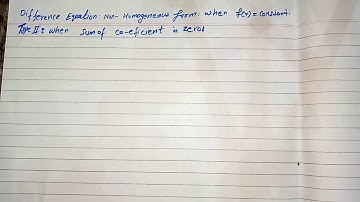 Difference Equation: Non-Homogeneous form: when f(x)=constant.
Type II: when sum of co-eficient is zero.